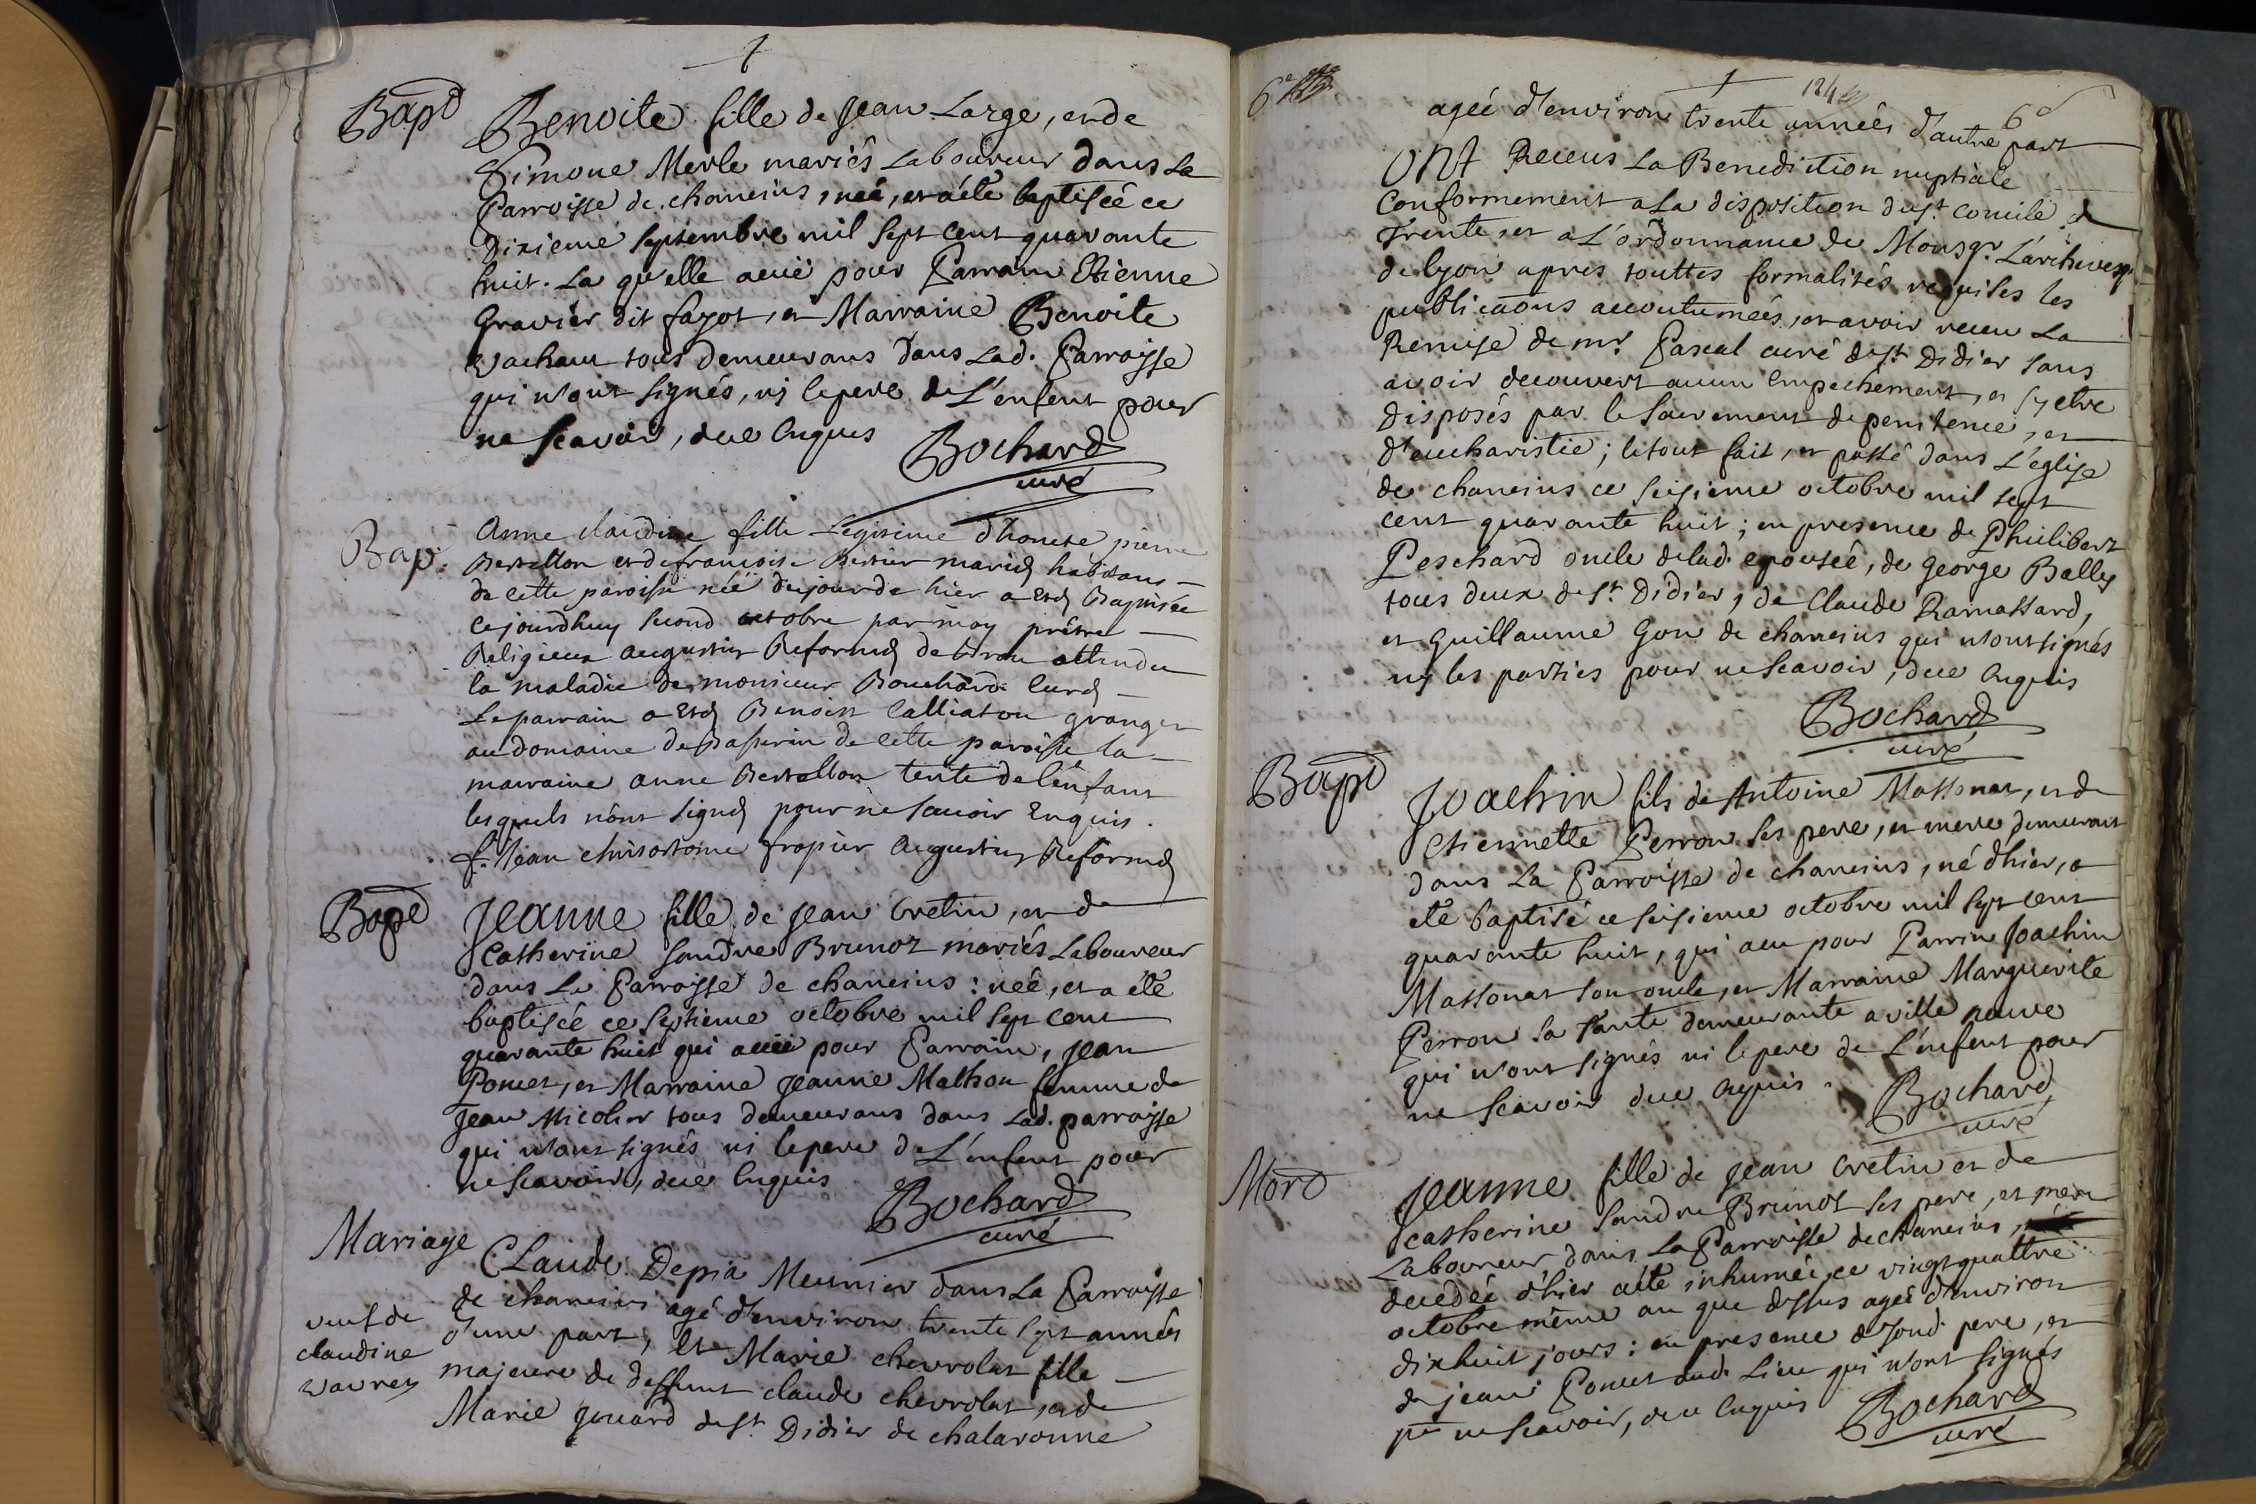 Bapt
Benoite fille de Jean Large, et de
Simone Merle mariés Laboureur dans La
Parroisse de chaneins, neé, et a été baptiseé ce
dixieme septembre mil sept cent quarante
huit. La qu'elle a eüe pour Parrain Etienne
Gravier dit fayot, et Marraine Benoite
tous demeurans dans Lad. Parroisse
qui n'ont signés, ny le pere de L'enfent pour
ne scavoir, dûe enquis
Bochard
curé
Bap:
Anne claudine fille Legitime d'honete pierre
Bertellon et de francoise Bertier mariés habitans
de cette paroisse née du jour de hier a Eté Baptisée
ce jourdhuy second octobre par moy prêtre
Religieux augustin Reformé de attendu
la maladie de monsieur Bouchard Curé
Le parrain a Eté Benoist Calliaton granger
au domaine de de cette paroisse la
marraine anne Bertellon tente de l'enfant
lesquels n'ont signé pour ne savoir Enquis.
f. Jean chrisostome fropier augustin Reformé
Bapt
Jeanne fille de Jean Cretin, et de
Catherine Sandre Brunot mariés Laboureur
dans La Parroisse de chaneins: neé, et a été
baptiseé ce septieme octobre mil sept cent
quarante huit qui a eüe pour Parrain, Jean
Poncet, et Marraine Jeanne Mathon femme de
Jean Micolier tous demeurans dans Lad. parroisse
qui n'ont signés ni le pere de L'enfent pour
ne scavoir, düe enquis
Bochard
curé
Mariage
veuf de
claudine
Claude Depia Meunier dans La Parroisse
de chaneins agé d'environ trente sept années
d'une part, Et Marie chevrolat fille
majeure de deffunt claude chevrolat, et de
Marie gouard de St. Didier de chalaronne
6e
124
6e
ageé d'environ trente années d'autre part
ONt Receus La Benediction nuptiale
Conformement a La disposition du St. Concile de
Trente, et a L'ordonnance de Monsgr. L'archeveq.
de lyon apres touttes formalités requises les
publicaons accoutumeés, et avoir receu La
Remise de mr. Pascal curé de St. Didier sans
avoir decouvert aucun empechement, et s'y etre
disposés par le Sacrement de penitence, et
d'eucharistie; le tout fait, et passé dans L'eglise
de chaneins ce seisieme octobre mil sept
cent quarante huit; en presence de Philibert
Peschard oncle de lad. epouseé, de george Balley
tous deux de St. Didier, de Claude Ramassard,
et Guillaume Gon de chaneins qui n'ont signés
ny les parties pour ne scavoir, düe enquis
Bochard
curé
Bapt
Joachin fils de Antoine Massonat, et de
Etiennette Perron ses pere, et mere demeurant
dans La Parroisse de chaneins, né d'hier, a
été baptisé ce seisieme octobre mil sept cent
quarante huit, qui a eu pour Parrin Joachin
Massonat son oncle, et Marraine Marguerite
Perron sa tante demeurante a ville neuve
qui n'ont signés ni le pere de L'enfent pour
ne scavoir düe enquis.
Bochard
curé
Mort
Jeanne fille de Jean Cretin et de
Catherine Sandre Brunot ses pere, et mere
Laboureur, dans La Parroisse de chaneins,
decedeé d'hier a été inhumeé ce vingt quattre
octobre même an que dessus ageé d'environ
dix huit jours: en presence de sond. pere, et
de jean Poncet dud. Lieu qui n'ont signés
pr. ne scavoir, düe enquis
Bochard
curé